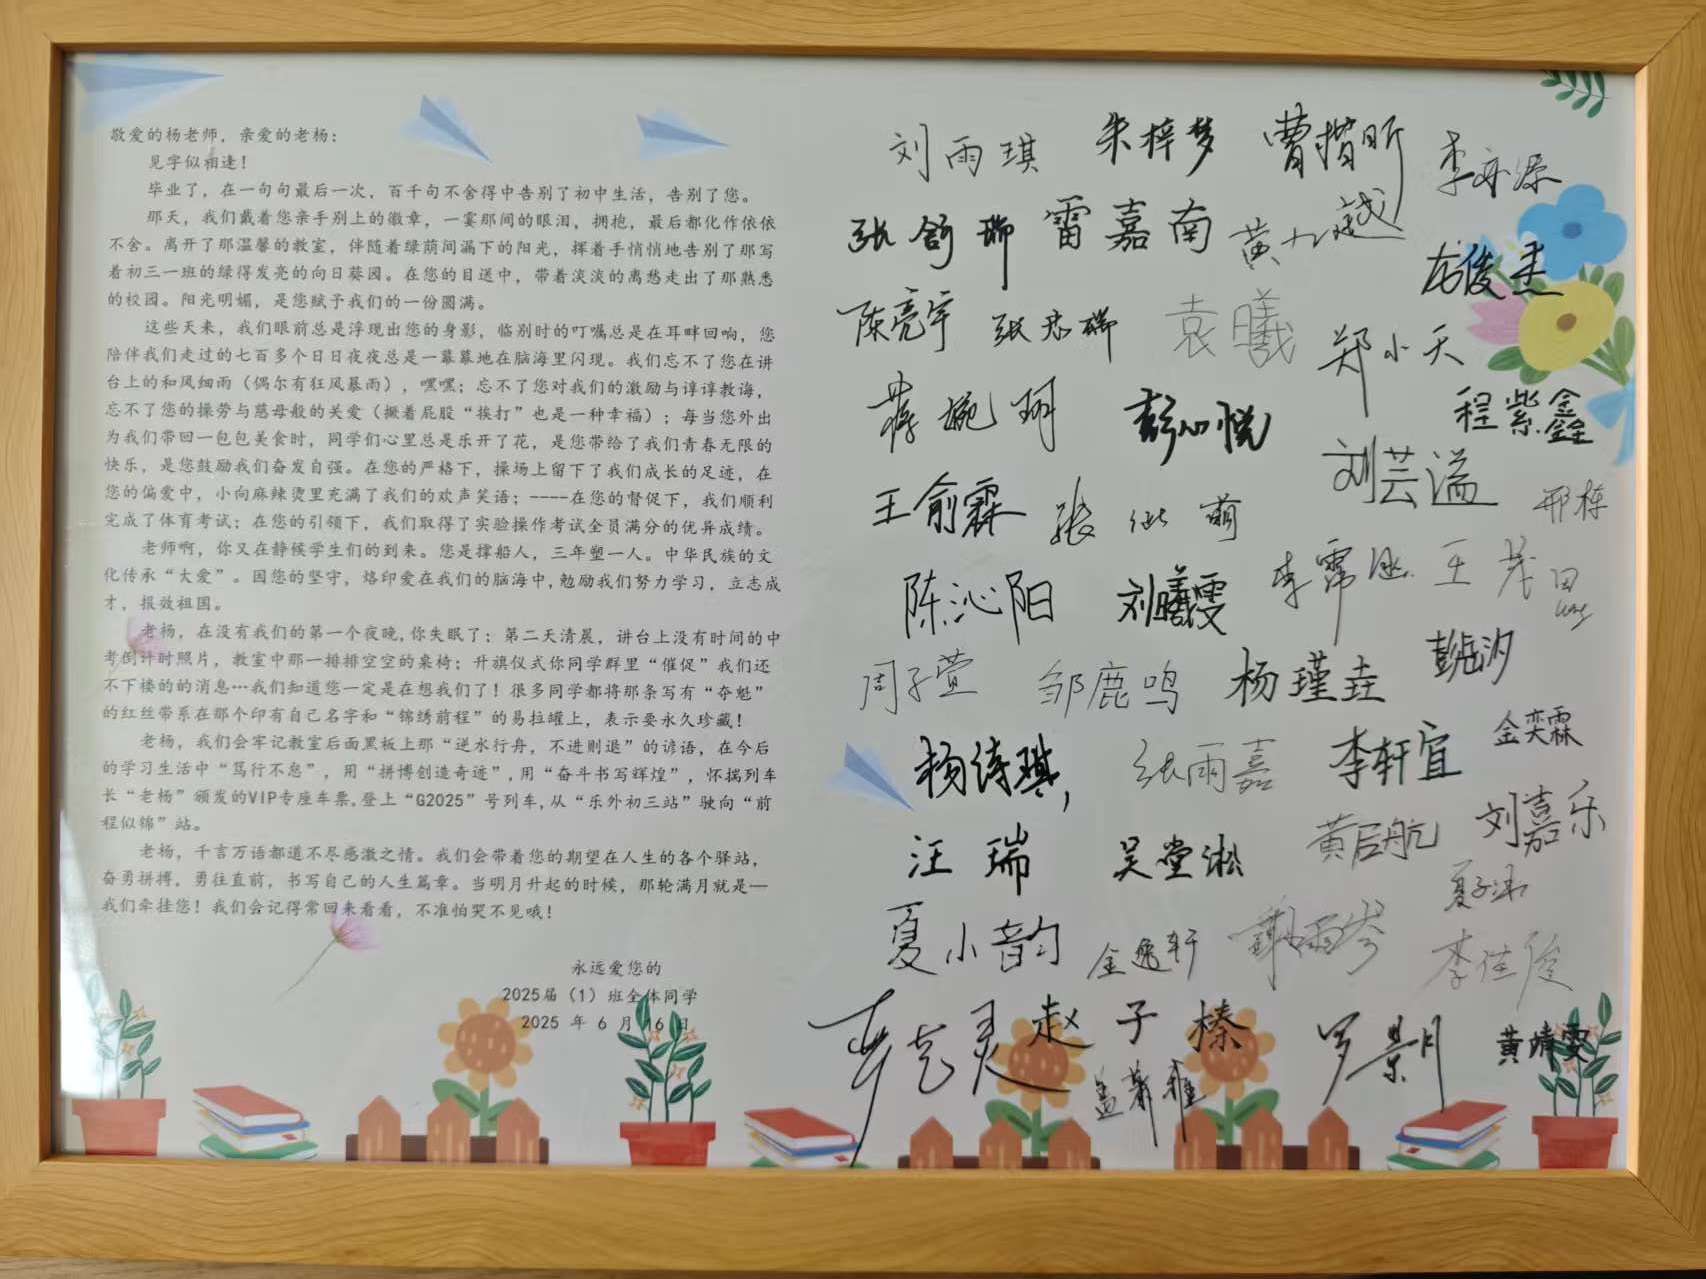 敬爱的杨老师，亲爱的老杨：
见字似相逢！
毕业了，在一句句最后一次，百千句不舍得中告别了初中生活，告别了您。
那天，我们戴着您亲手别上的徽章，一霎那间的眼泪，拥抱，最后都化作依依
不舍。离开了那温馨的教室，伴随着绿荫间漏下的阳光，挥着手悄悄地告别了那写
着初三一班的绿得发亮的向日葵园。在您的目送中，带着淡淡的离愁走出了那熟悉
的校园。阳光明媚，是您赋予我们的一份圆满。
这些天来，我们眼前总是浮现出您的身影，临别时的叮嘱总是在耳畔回响，您
陪伴我们走过的七百多个日日夜夜总是一幕幕地在脑海里闪现。我们忘不了您在讲
台上的和风细雨（偶尔有狂风暴雨），嘿嘿；忘不了您对我们的激励与谆谆教诲，
忘不了您的操劳与慈母般的关爱（撅着屁股“挨打”也是一种幸福）；每当您外出
为我们带回一包包美食时，同学们心里总是乐开了花，是您带给了我们青春无限的
快乐，是您鼓励我们奋发自强。在您的严格下，操场上留下了我们成长的足迹，在
您的偏爱中，小向麻辣烫里充满了我们的欢声笑语；----在您的督促下，我们顺利
完成了体育考试；在您的引领下，我们取得了实验操作考试全员满分的优异成绩。
老师啊，你又在静候学生们的到来。您是撑船人，三年塑一人。中华民族的文
化传承“大爱”。因您的坚守，烙印爱在我们的脑海中,勉励我们努力学习，立志成
才，报效祖国。
老杨，在没有我们的第一个夜晚,你失眠了；第二天清晨，讲台上没有时间的中
考倒计时照片，教室中那一排排空空的桌椅；升旗仪式你同学群里“催促”我们还
不下楼的的消息…我们知道您一定是在想我们了！很多同学都将那条写有“夺魁”
的红丝带系在那个印有自己名字和“锦绣前程”的易拉罐上，表示要永久珍藏！
老杨，我们会牢记教室后面黑板上那“逆水行舟，不进则退”的谚语，在今后
的学习生活中“笃行不怠”，用“拼博创造奇迹”,用“奋斗书写辉煌”，怀揣列车
长“老杨”颁发的VIP专座车票,登上“G2025”号列车,从“乐外初三站”驶向“前
程似锦”站。
老杨，千言万语都道不尽感激之情。我们会带着您的期望在人生的各个驿站，
奋勇拼搏，勇往直前，书写自己的人生篇章。当明月升起的时候，那轮满月就是—
我们牵挂您！我们会记得常回来看看，不准怕哭不见哦！
永远爱您的
2025届（1）班全体同学
2025 年 6 月 16 日
刘雨琪 朱梓梦 曹揩昕 李亦源
张舒瑞 雷嘉南 黄九越
陈亮宇 袁曦 郑小天
蒋婉玥 彭心悦 程紫鑫
王俞霖 张 萌 刘芸溢 邢栋
陈沁阳 刘曦雯 王茂
周子萱 邹鹿鸣 杨瑾垚
杨诗琪 张雨嘉 李轩宜 金奕霖
汪瑞 吴堂淞 黄启航 刘嘉乐
夏小韵 金逸轩 李佳俊
赵子榛 罗景月 黄靖雯